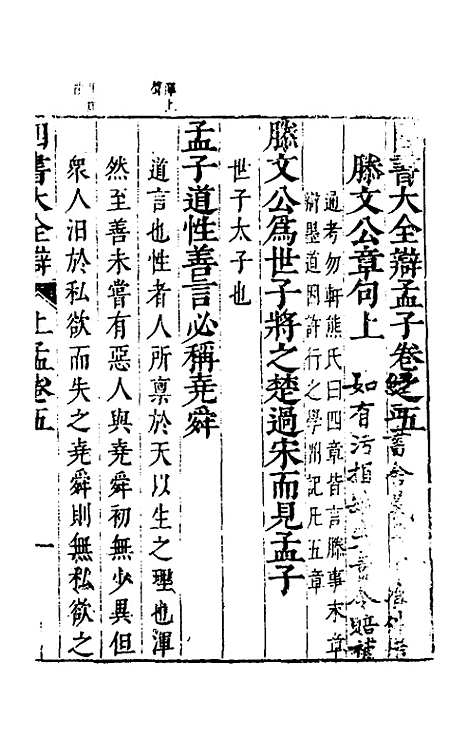 四書大全辯孟子卷之五
滕文公章句上
如有污損
令賠補
通考勿軒熊氏曰四章皆言滕事末章
辯墨道因許行之學附記凡五章
滕文公為世子將之楚過宋而見孟子
世子太子也
孟子道性善言必稱堯舜
道言也性者人所禀於天以生之理也渾
然至善未嘗有惡人與堯舜初無少異但
衆人汨於私欲而失之堯舜則無私欲之
四書大全辯
上孟卷五
一